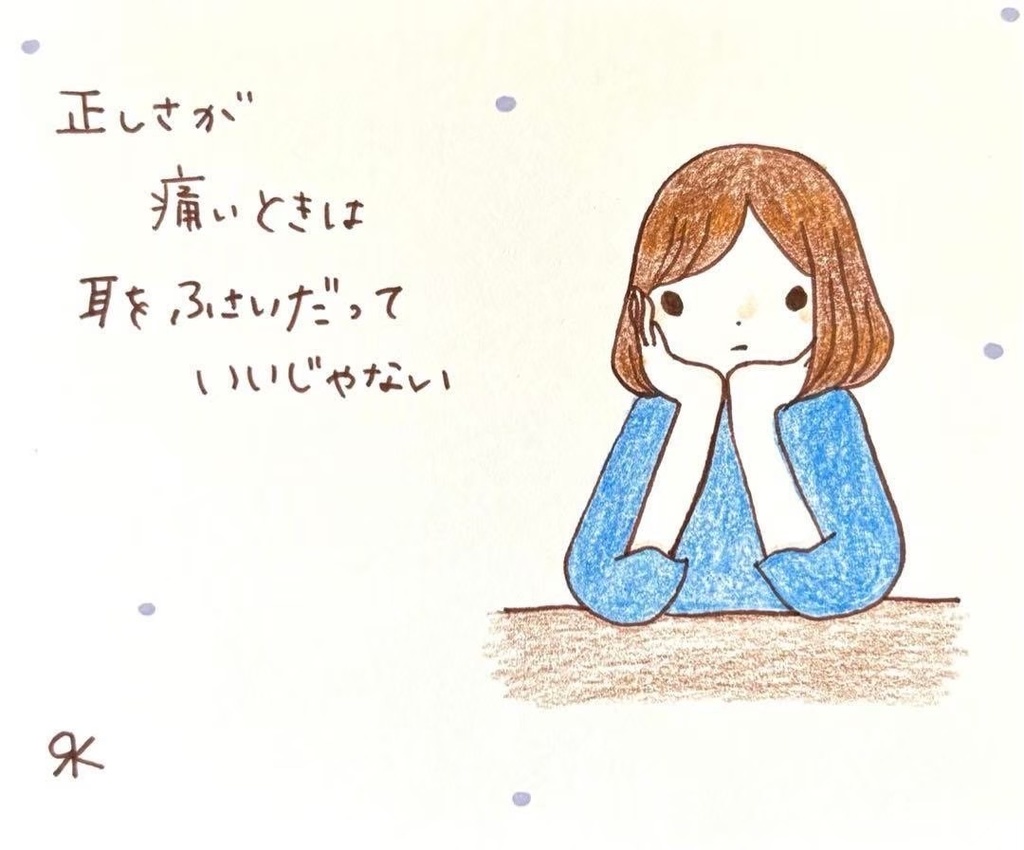 正しさが
痛いときは
耳をふさいだって
いいじゃない